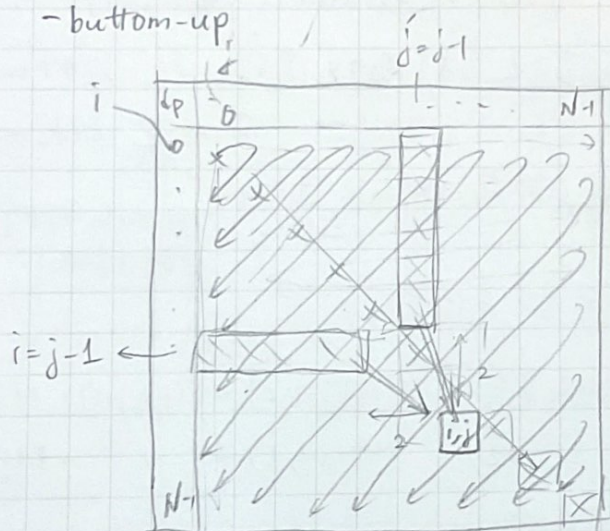 - buttom-up
j=j-1
i dp 0 . . . . N-1
0
.
.
i=j-1
2
2 i,j
N-1